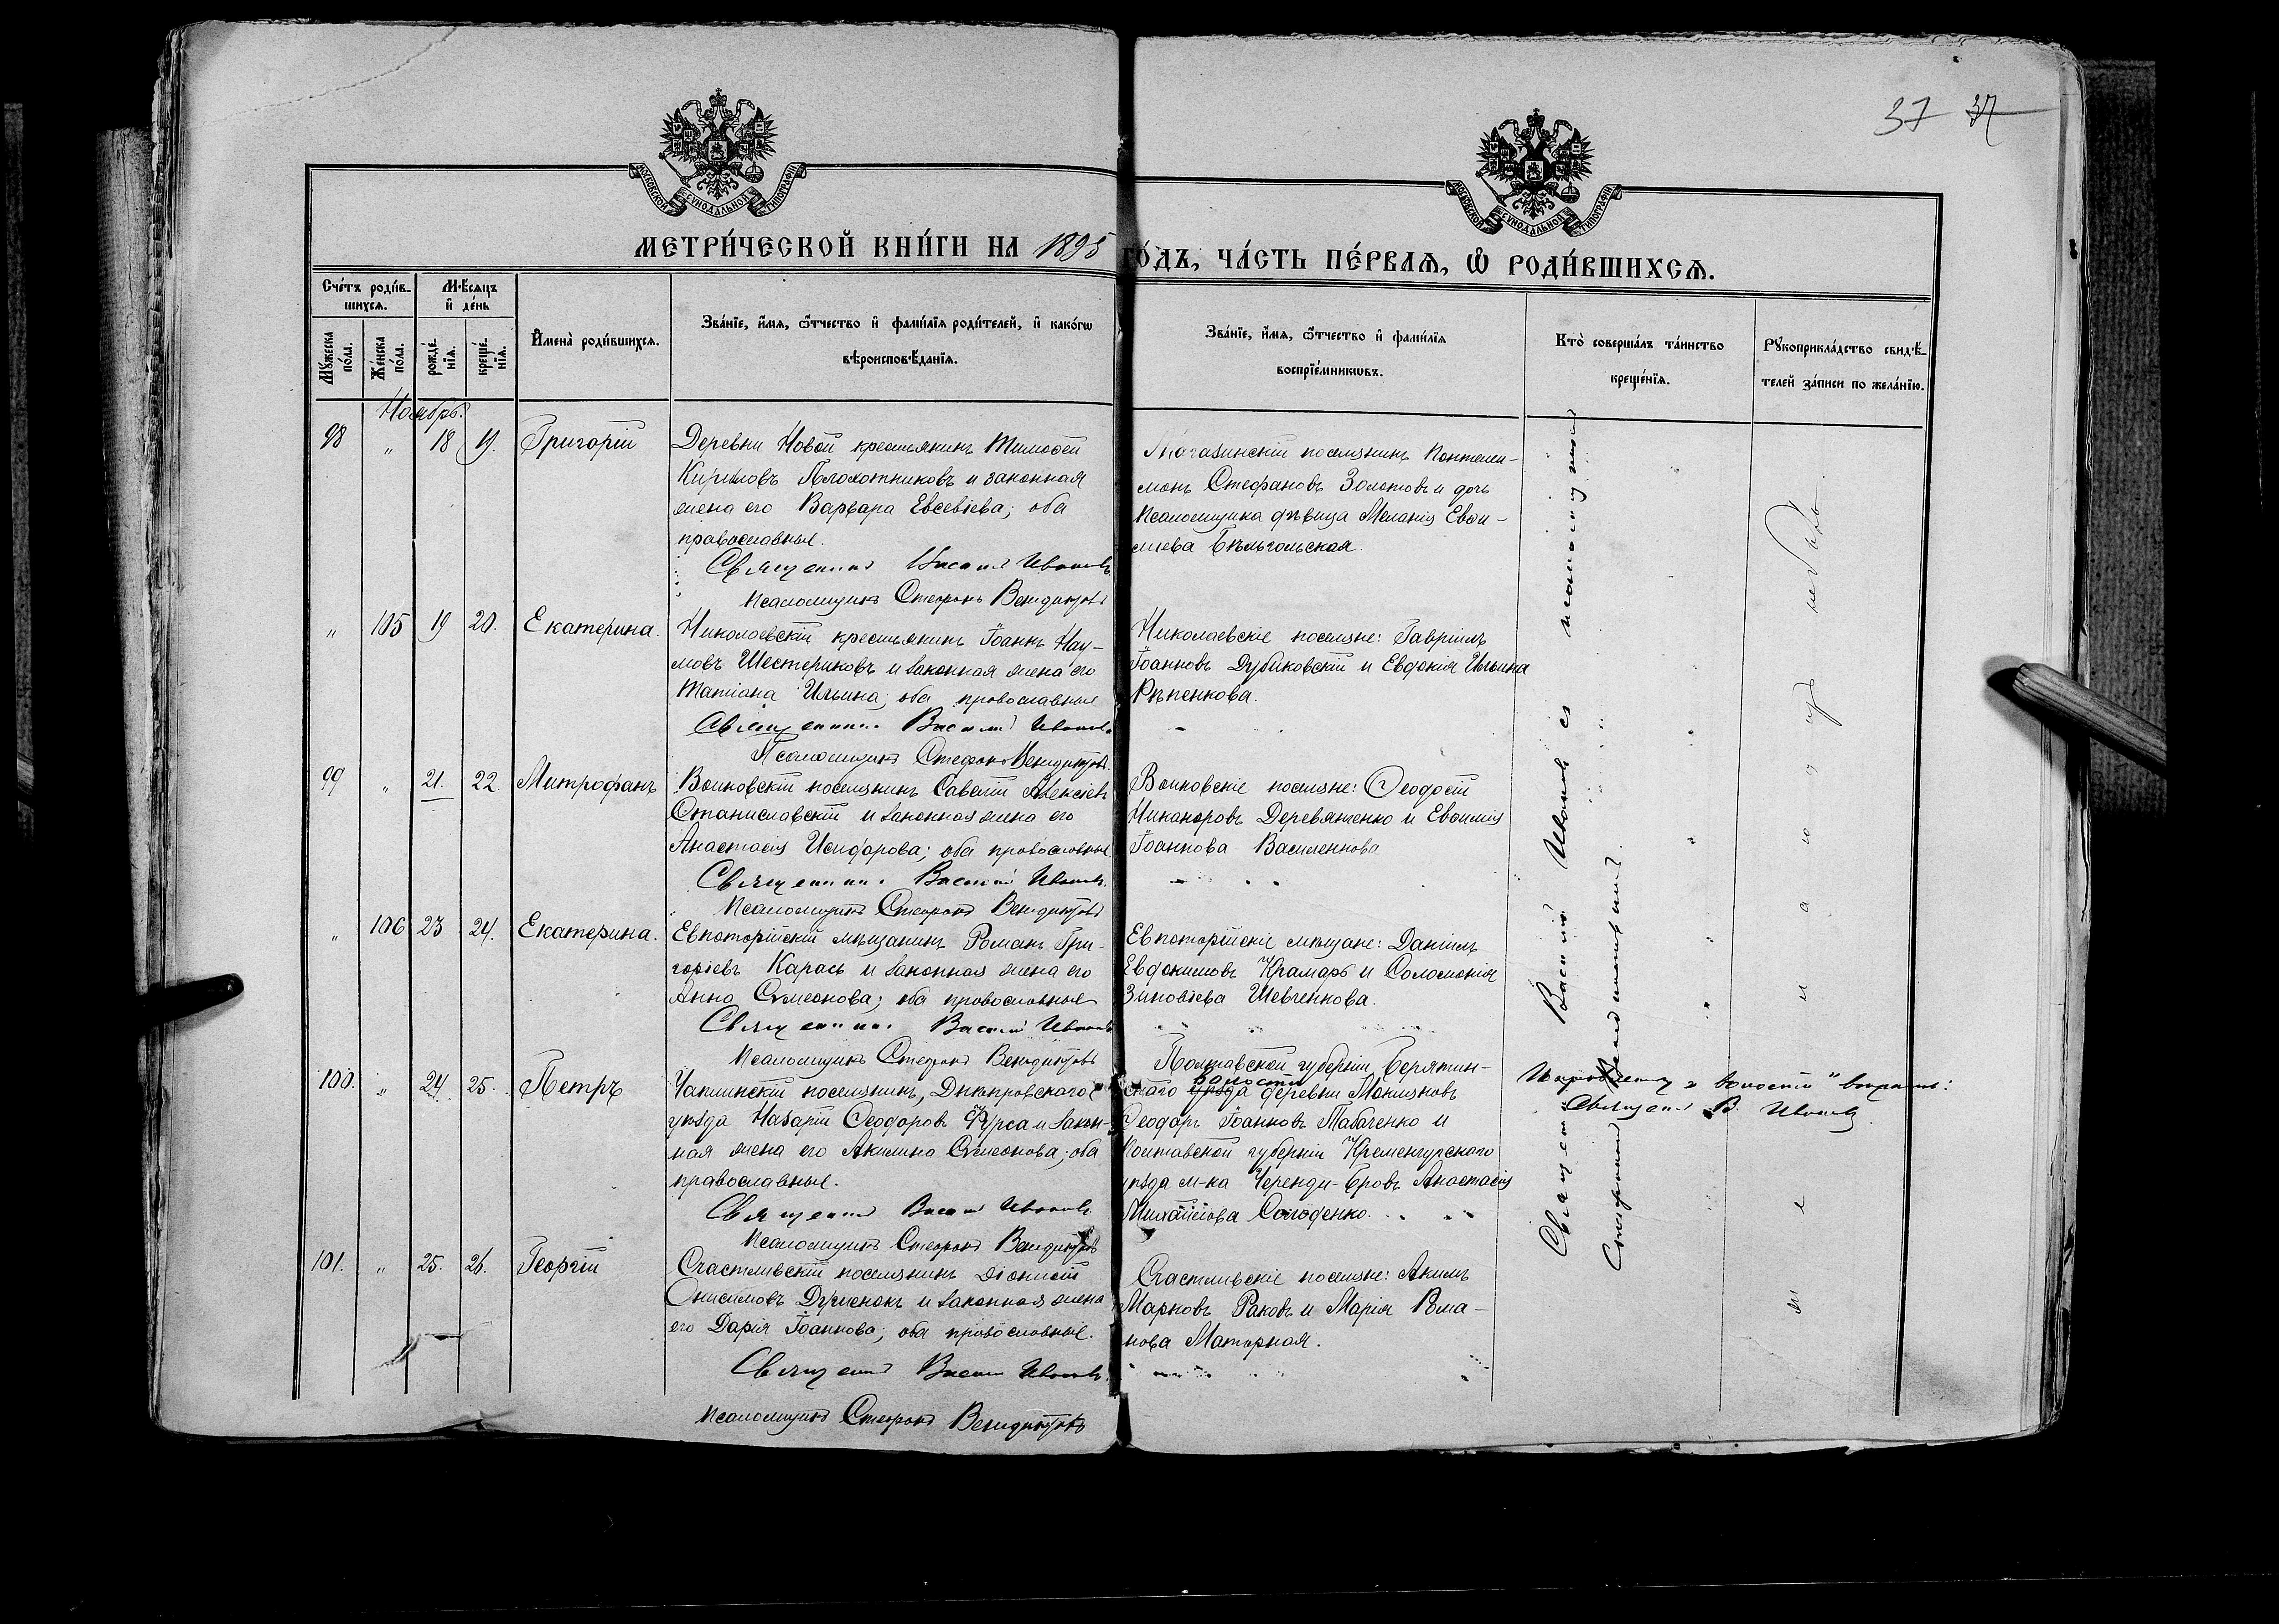 37 37
МОСКОВСКОЙ СѴНОДАЛЬНОЙ ТИПОГРАФІИ
МОСКОВСКОЙ СѴНОДАЛЬНОЙ ТИПОГРАФІИ
МЕТРИ́ЧЕСКОЙ КНИ́ГИ НА 1895 ГО́ДЪ, ЧА́СТЬ ПЕ́РВАѦ, Ѽ РОДИ́ВШИХСѦ.
Сче́тъ роди́в-
шихсѧ.
Мꙋжеска по́ла.
Же́нска по́ла.
Мѣ́сяцъ
и҆ де́нь
рожде́нїѧ.
креще́нїѧ.
И҆мена̀ роди́вшихсѧ.
Зва́нїе, и҆́мѧ, ѻ҆́тчество и҆ фами́лїѧ роди́телей, и҆ како́гѡ
вѣроисповѣ́данїѧ.
Зва́нїе, и҆́мѧ, ѻ҆́тчество и҆ фами́лїѧ
воспрїе́мникѡвъ.
Кто̀ соверша́лъ та́инство
креще́нїѧ.
Рꙋкоприкла́дство свидѣ́-
телей за́писи по жела́нїю.
Ноябрь.
98 " 18 19. Григорій
Деревни Новой крестьянинъ Тимоѳей
Кириловъ Плохотниковъ и законная
жена его Варвара Евсевіева; оба
православные.
Священникъ Василій Ивановъ
Псаломщикъ Стефанъ Венедиктовъ
поселянинъ Пантелеи-
монъ Стефановъ Золотовъ и дочь
псаломщика дѣвица Меланія Евѳи-
міева
" 105 19 20. Екатерина.
Николаевскій крестьянинъ Іоаннъ Нау-
мовъ Шестериковъ и законная жена его
Татіана Ильина; оба православные
Священникъ Василій Ивановъ
Псаломщикъ Стефанъ Венедиктовъ
Николаевскіе поселяне: Гавріилъ
Іоанновъ Дубиковскій и Евдокія Ильина
Рѣпенкова.
99 " 21. 22. Митрофанъ
поселянинъ Савелій Алексѣевъ
Станиславскій и законная жена его
Анастасія Исидорова; оба православные
Священникъ Василій Ивановъ
Псаломщикъ Стефанъ Венедиктовъ
поселяне: Ѳеодосій
Никаноровъ Деревянченко и Евѳимія
Іоаннова Василенкова
" 106 23 24. Екатерина.
Евпаторійскій мѣщанинъ Романъ Гри-
горіевъ Карась и законная жена его
Анна Симеонова; оба православные
Священникъ Василій Ивановъ
Псаломщикъ Стефанъ Венедиктовъ
Евпаторійскіе мѣщане: Даніилъ
Евдокимовъ Крамарь и Соломонія
Зиновіева Шевченкова.
100. " 24 25. Петръ
Чаплинскій поселянинъ, Днѣпровскаго
уѣзда Назарій Ѳеодоровъ Фурса и закон-
ная жена его Акилина Симеонова; оба
православные.
Священникъ Василій Ивановъ
Псаломщикъ Стефанъ Венедиктовъ
Полтавской губерніи
волости
уѣзда деревни
Ѳеодоръ Іоанновъ Табаченко и
Полтавской губерніи Кременчугскаго
уѣзда м-ка Анастасія
Михайлова Солоденко.
101. " 25. 26. Георгій
Счастливскій поселянинъ Діонисій
Онисимовъ и законная жена
его Дарія Іоаннова; оба православные.
Священникъ Василій Ивановъ
Псаломщикъ Стефанъ Венедиктовъ
Счастливскіе поселяне: Акимъ
Марковъ Раковъ и Марія Рома-
нова Маторная.
Священникъ Василій Ивановъ съ псаломщикомъ
Стефаномъ Венедиктовымъ.
"волости" вѣрно:
Священникъ В. Ивановъ